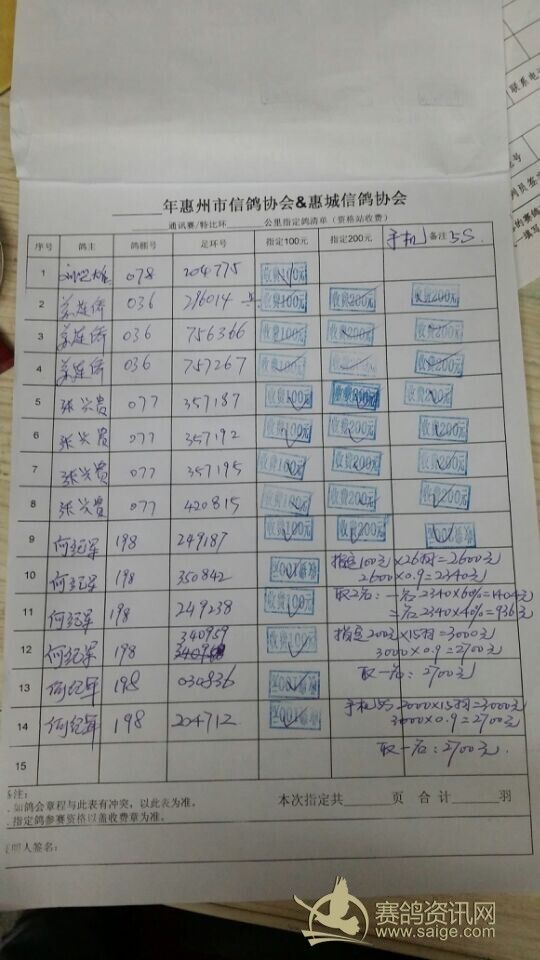 年惠州市信鸽协会&惠城信鸽协会
通讯赛/特比环 公里指定鸽清单(资格站收费)
序号 鸽主 鸽棚号 足环号 指定100元 指定200元 手机 备注 5S
1 078 204775 收费100元
2 036 296014 收费100元 收费200元 收费200元
3 036 756366 收费100元 收费200元 收费200元
4 036 757267 收费100元 收费200元 收费200元
5 张兴贵 077 357187 收费100元 收费200元 收费200元
6 张兴贵 077 357192 收费100元 收费200元 收费200元
7 张兴贵 077 357195 收费100元 收费200元 收费200元
8 张兴贵 077 420815 收费100元 收费200元 收费200元
9 何纪军 198 249187 收费100元 收费200元 收费200元
10 何纪军 198 350842 收费100元
指定100元×26羽=2600元
2600×0.9=2340元
11 何纪军 198 249238 收费100元
取2名:一名2340×60%=1404元
二名2340×40%=936元
12 何纪军 198 340959 收费100元
指定200元×15羽=3000元
3000×0.9=2700元
13 何纪军 198 030836 收费100元
取一名:2700元
14 何纪军 198 204712 收费100元
手机 2000×15羽=3000元
3000×0.9=2700元
15
取一名:2700元.
备注:
如鸽会章程与此表有冲突,以此表为准。
指定鸽参赛资格以盖收费章为准。
本次指定共 页 合计 羽
人签名:
联系电
赛鸽资讯网
www.saige.com